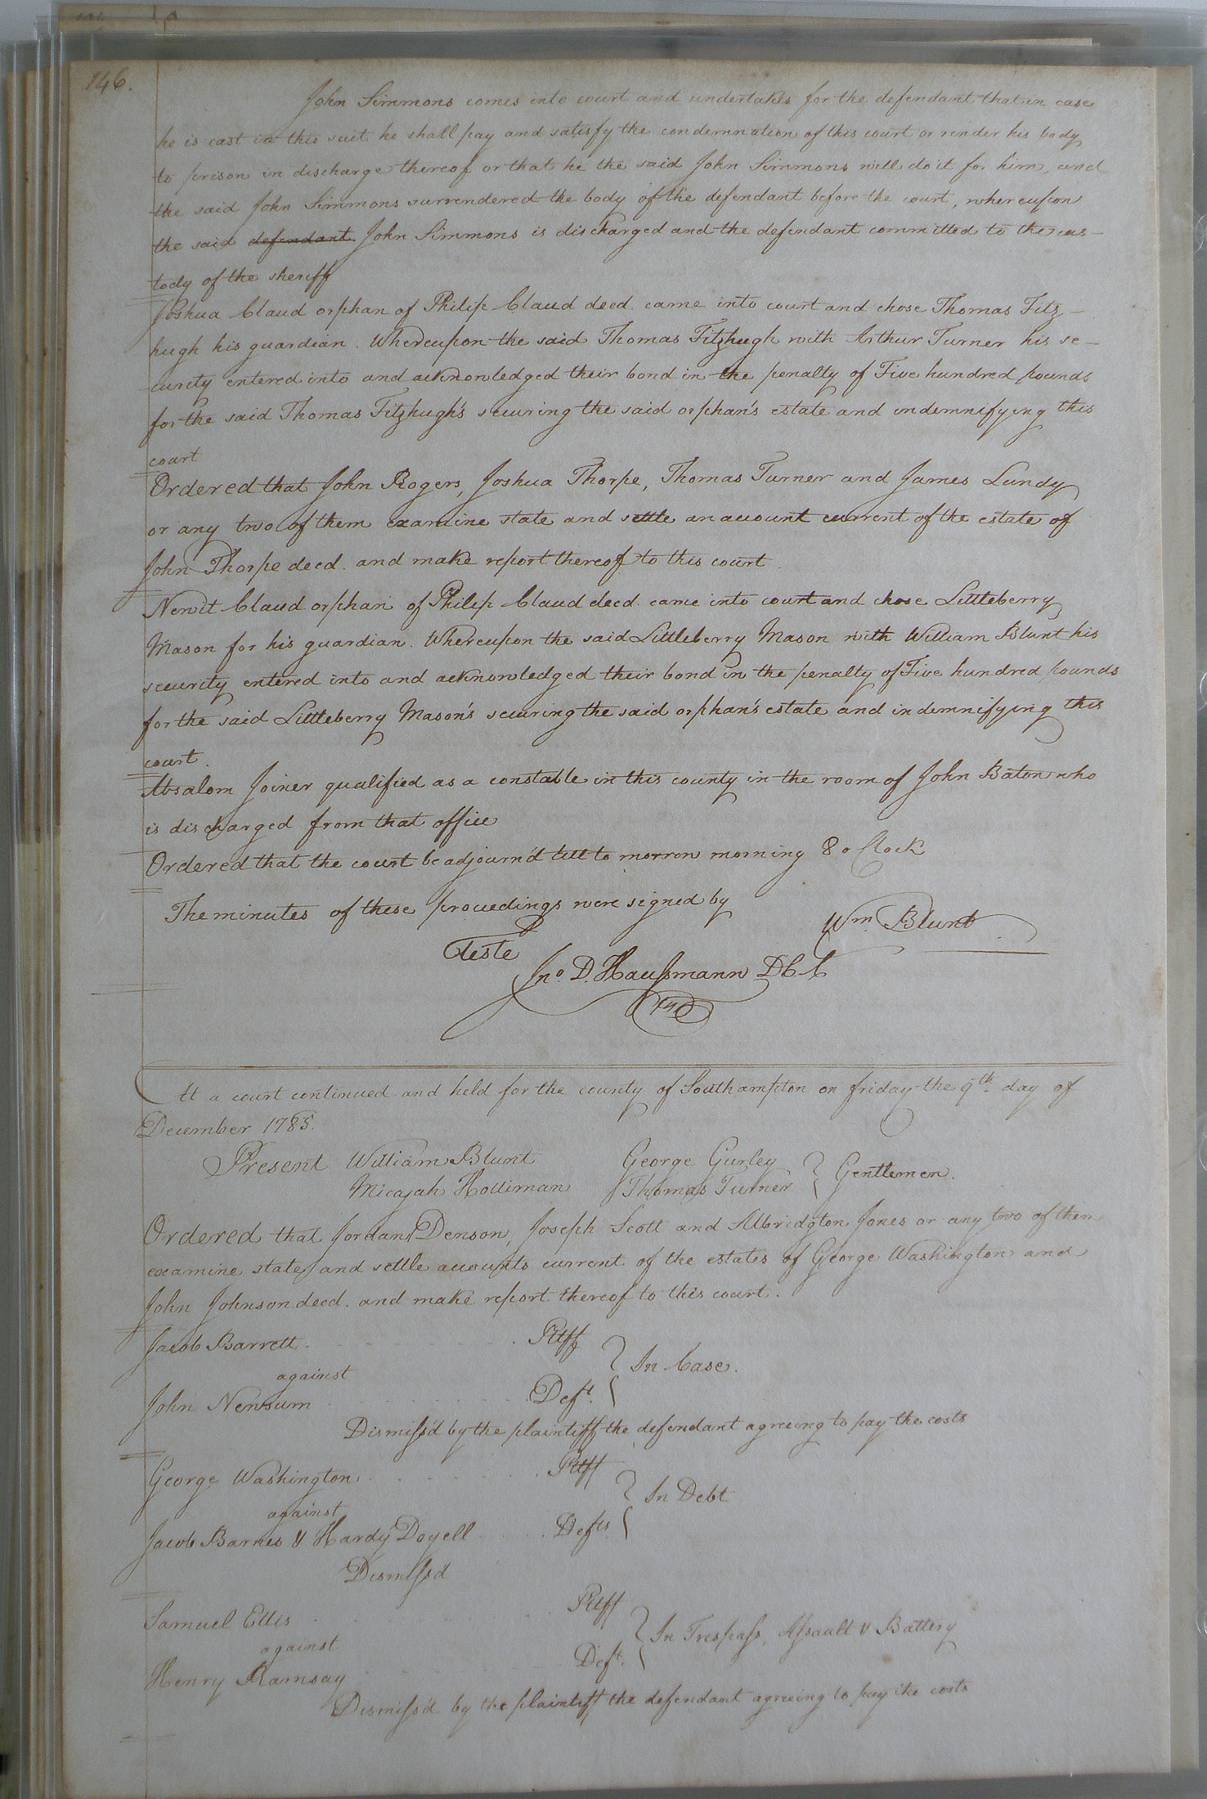 146.
John Simmons comes into court and undertakes for the defendant that in case
he is cast in this suit he shall pay and satisfy the condemnation of this court or render his body
to prison in discharge thereof or that he the said John Simmons will do it for him, and
the said John Simmons surrendered the body of the defendant before the court, whereupon
the said defendant John Simmons is discharged and the defendant committed to the cus-
tody of the sheriff
Joshua Claud orphan of Philip Claud deed. came into court and chose Thomas Fitz-
hugh his guardian. Whereupon the said Thomas Fitzhugh with Arthur Turner his se-
curity entered into and acknowledged their bond in the penalty of Five hundred pounds
for the said Thomas Fitzhugh's securing the said orphan's estate and indemnifying this
court
Ordered that John Rogers, Joshua Thorpe, Thomas Turner and James Lundy
or any two of them examine state and settle an account current of the estate of
John Thorpe deed. and make report thereof to this court.
Newit Claud orphan of Philip Claud deed. came into court and chose Littleberry
Mason for his guardian. Whereupon the said Littleberry Mason with William Blunt his
security entered into and acknowledged their bond in the penalty of Five hundred pounds
for the said Littleberry Mason's securing the said orphan's estate and indemnifying this
court.
Absalom Joiner qualified as a constable in this county in the room of John Baton who
is discharged from that office
Ordered that the court be adjourn'd till to morrow morning 8 o Clock
The minutes of these proceedings were signed by
Wm. Blunt
Teste
Jno. D. Haussmann D C C
At a court continued and held for the county of Southampton on friday the 9th. day of
December 1785.
Present William Blunt George Gurley
Micajah Holliman Thomas Turner } Gentlemen.
Ordered that Jordan Denson, Joseph Scott and Albridgton Jones or any two of them
examine state and settle accounts current of the estates of George Washington and
John Johnson deed. and make report thereof to this court.
Jacob Barrett. Pltff
against } In Case.
John Newsum Deft.
Dismiss'd by the plaintiff the defendant agreeing to pay the costs
George Washington Pltff
against } In Debt
Jacob Barnes & Hardy Doyell Defts.
Dismiss'd
Samuel Ellis Pltff
against } In Trespass, Assault & Battery
Henry Ramsay Deft.
Dismiss'd by the plaintiff the defendant agreeing to pay the costs